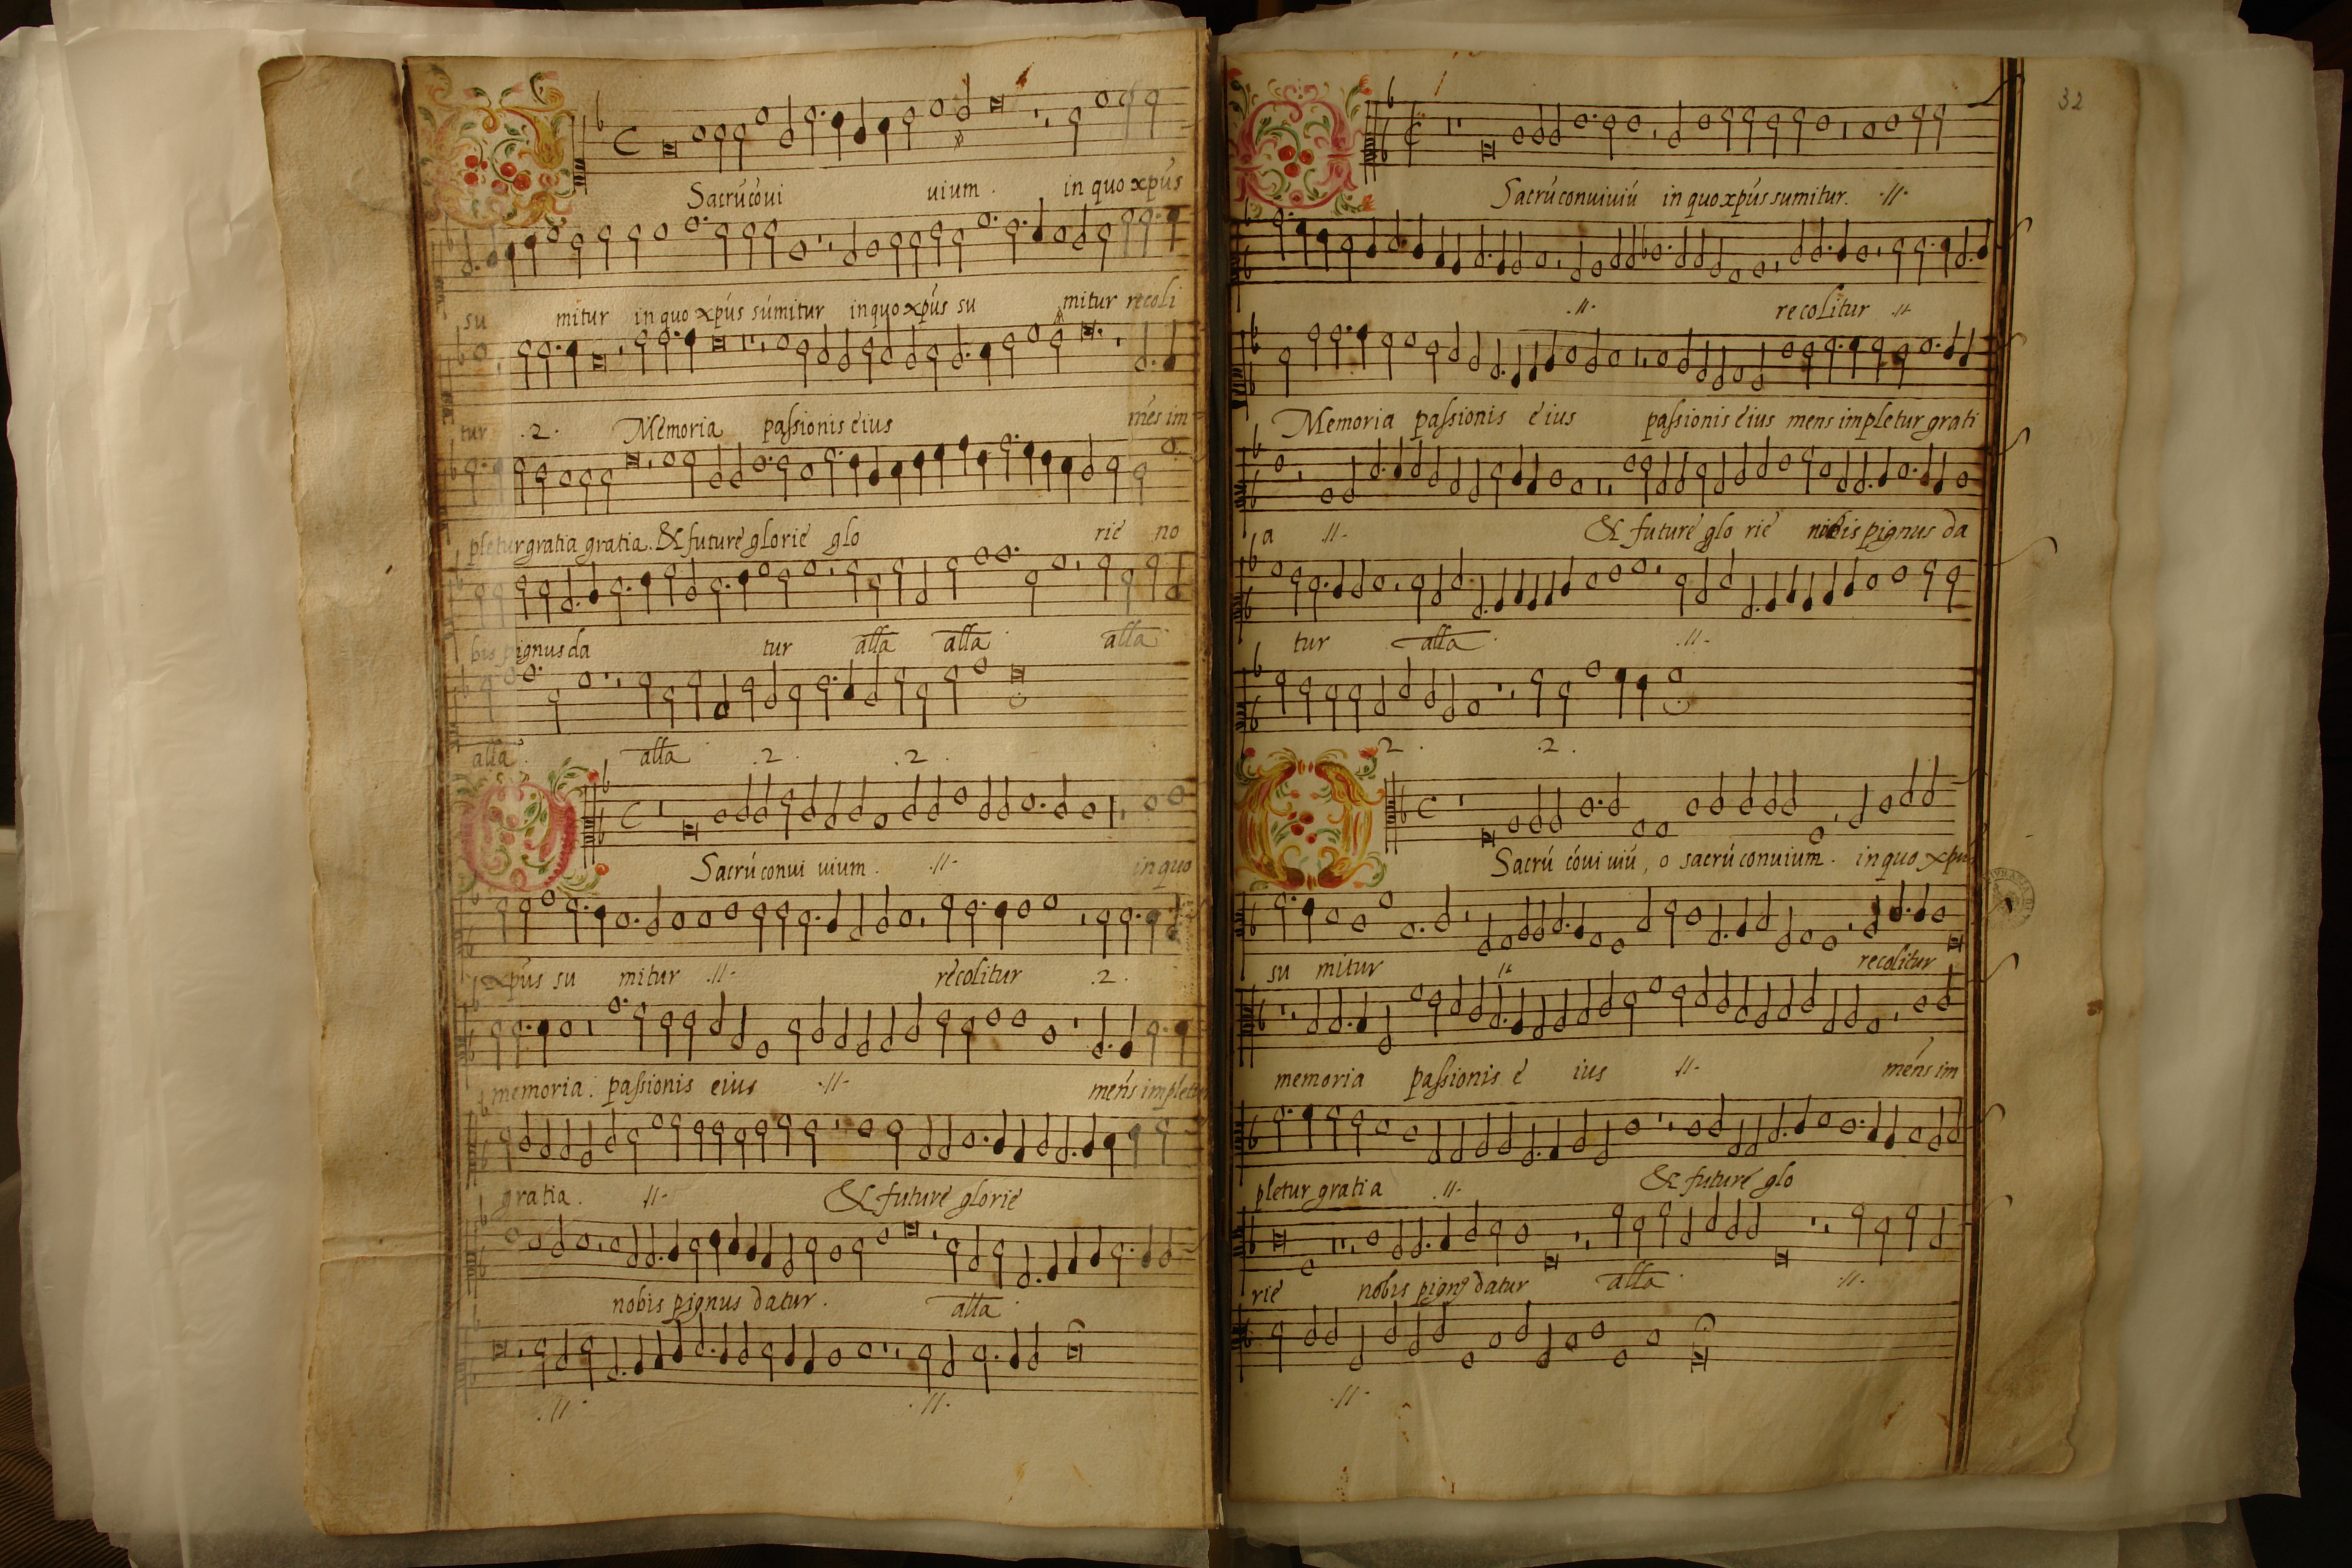 O Sacrú cóui uium. in quo xpús
su mitur in quo xpús súmitur in quo xpús su mitur recoli
tur .2. Memoria passionis eius més im
pletur gratia gratia. & future glorie glo rie no
bis pignus da tur alla alla alla
alla alla .2. .2.
O Sacrú conui uium. .//. in quo
xpús su mitur .//. recolitur .2.
memoria. passionis eius .//. mens impletur
gratia. .//. & future glorie
nobis pignus datur. alla
.//. .//.
32
O Sacrú conuiuiú in quo xpús sumitur. .//.
.//. recolitur .//.
Memoria passionis eius passionis eius mens impletur grati
a .//. & future glo rie nobis pignus da
tur alla .//.
2. .2.
O Sacrú cóui uiú, o sacrú conuium. in quo xpus
su mitur .//. recolitur
memoria passionis e ius .//. mens im
pletur gratia .//. & future glo
rie nobis pign9 datur alla .//.
.//.